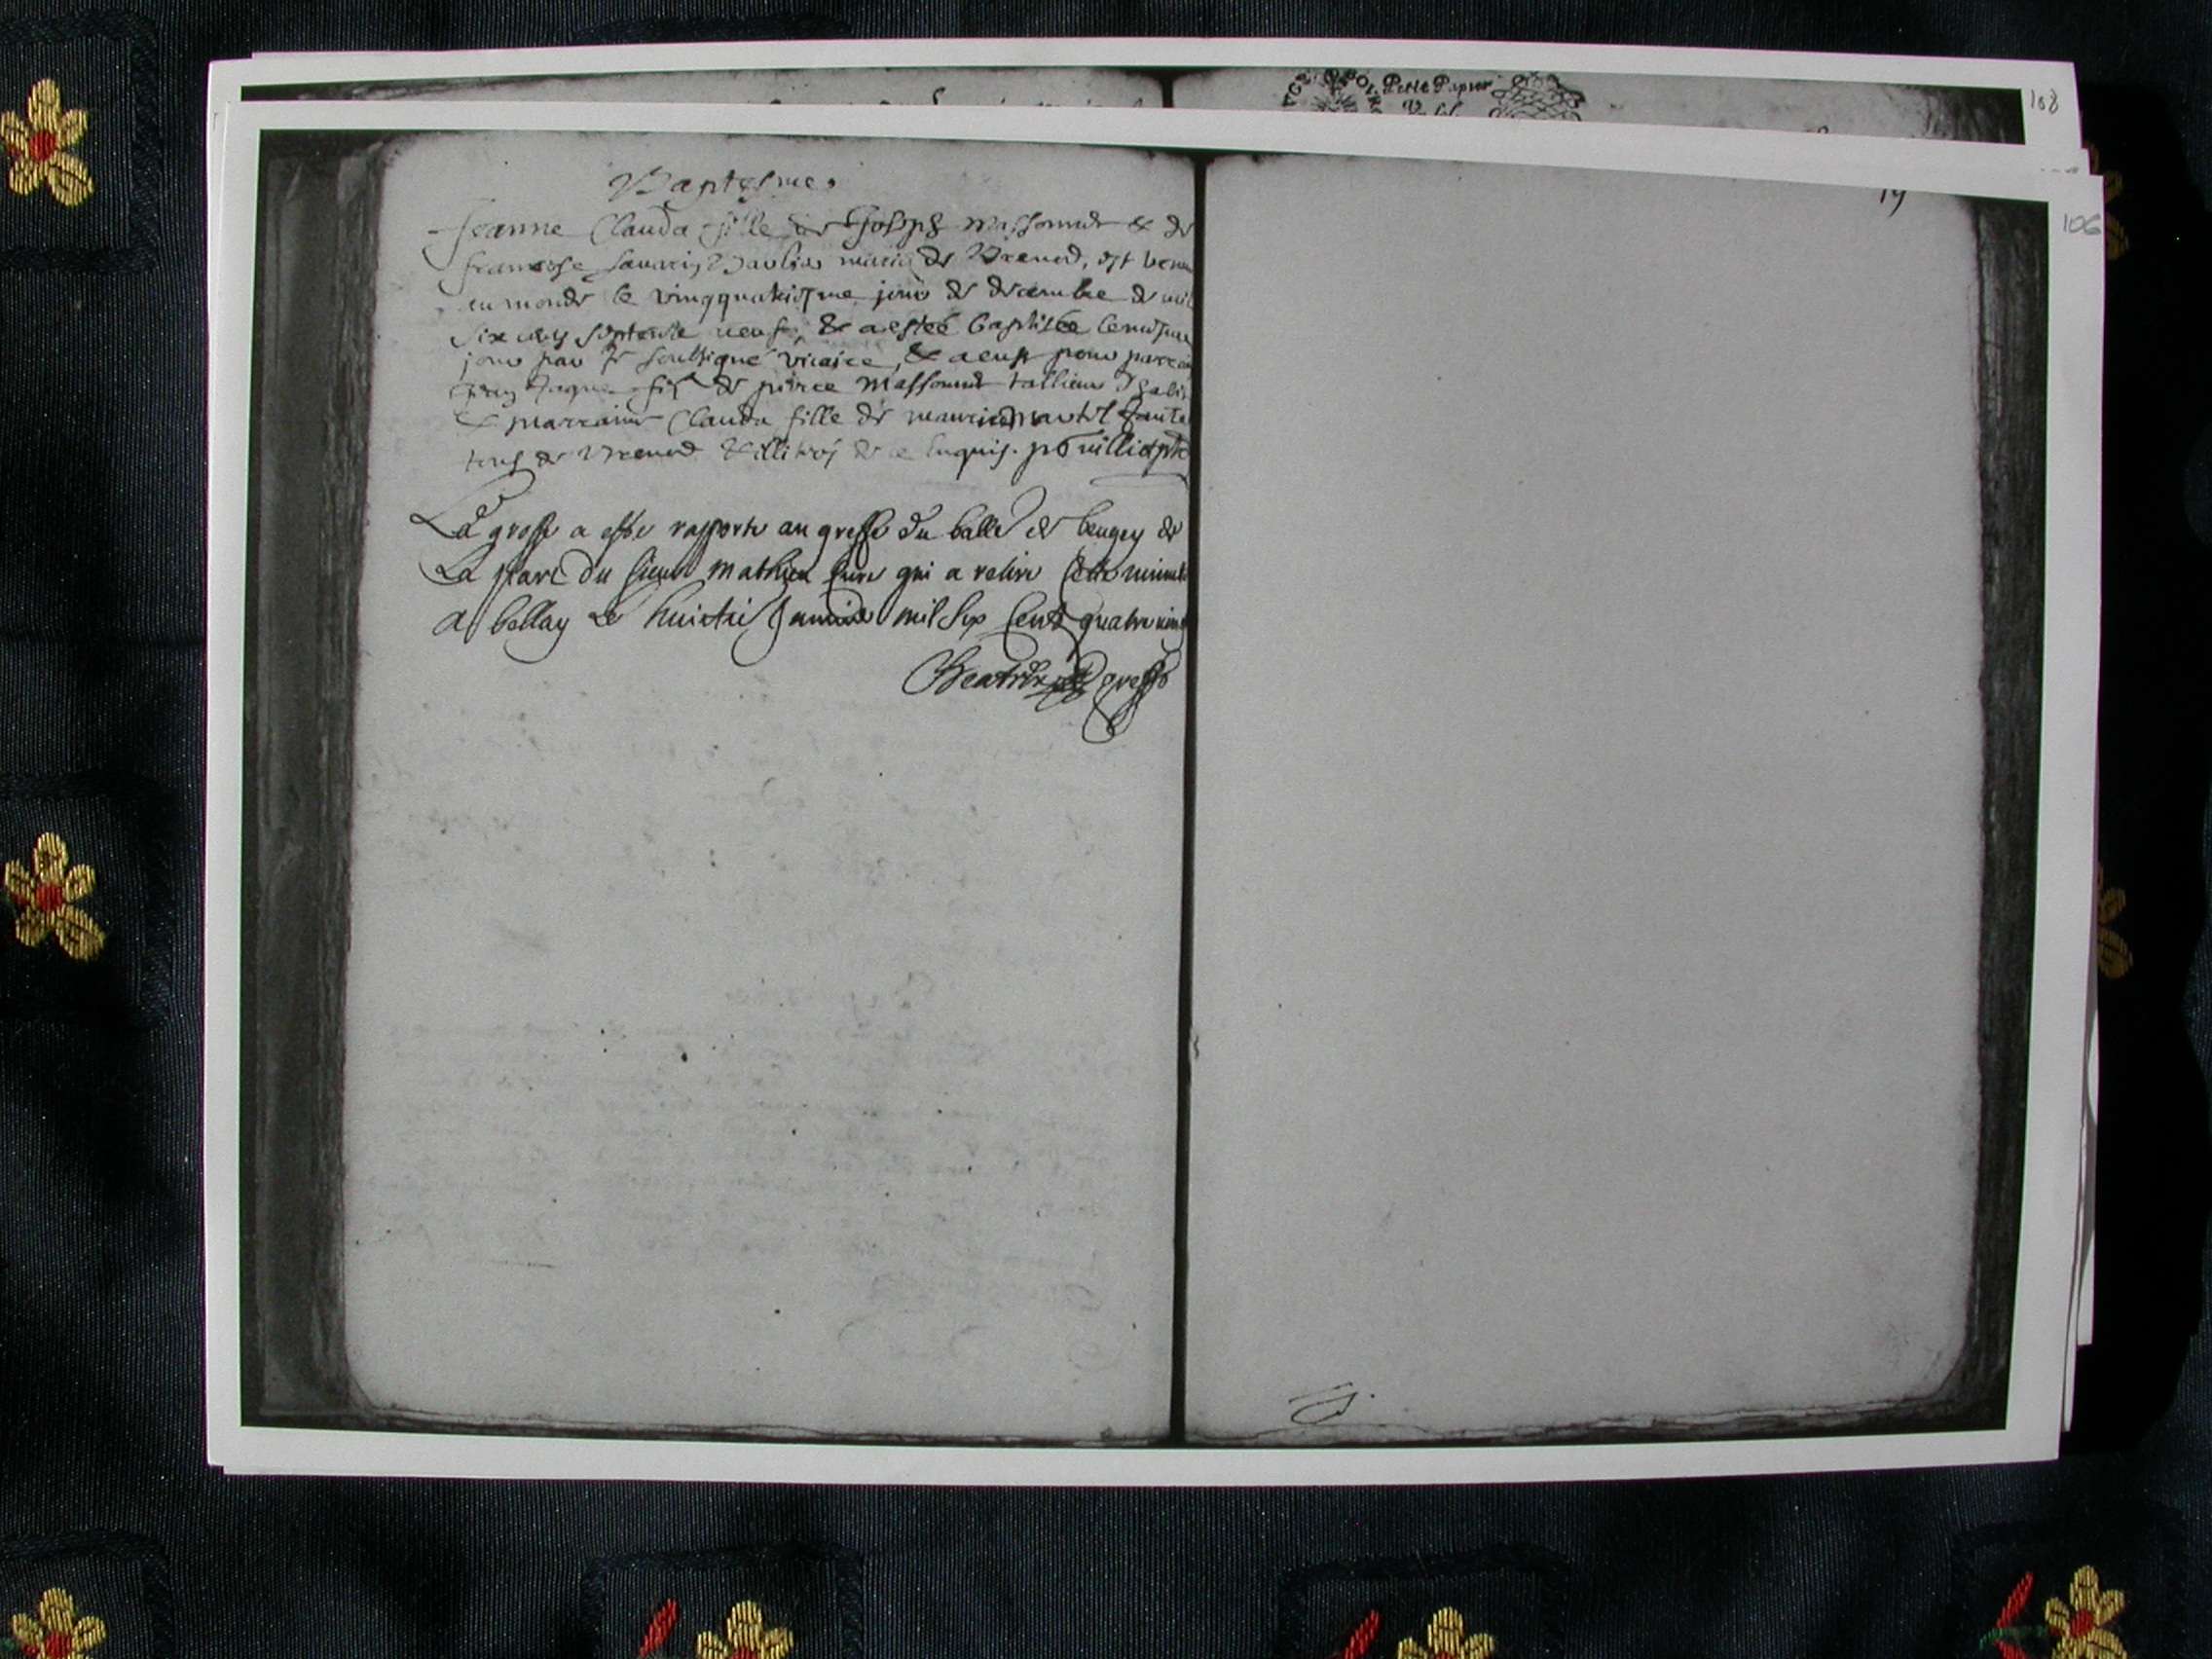 108
Petit Papier
106
19
Baptesmes
Jeanne Clauda fille de Joseph Massonnet & de
françoise savarin Paulia mariés de Brenod, est venue
au monde le vingquatriesme jour de decembre de mil
six cens septente neuf, & a estée baptisée le mesme
jour par je soubsigné vicaire, & a eust pour parrain
Jaque fil de pierre Massonnet
& marraine Clauda fille de maurice
tous de Brenod & illitrés de ce enquis.
La grosse a esté rapporté au greffe du balle de beugey de
La part du sieur mathieu curé qui a retiré cette minutte
a bellay Le huictié Janvier mil six cent quatre vint